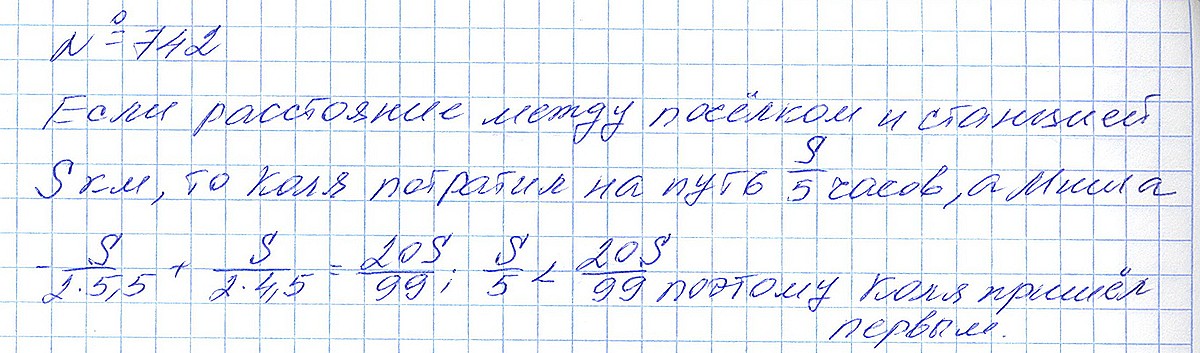 № 742
Если расстояние между посёлком и станцией
S км, то Коля потратил на путь S/5 часов, а Миша
- S/2·5,5 + S/2·4,5 = 20S/99; S/5 < 20S/99 поэтому Коля пришёл
первым.